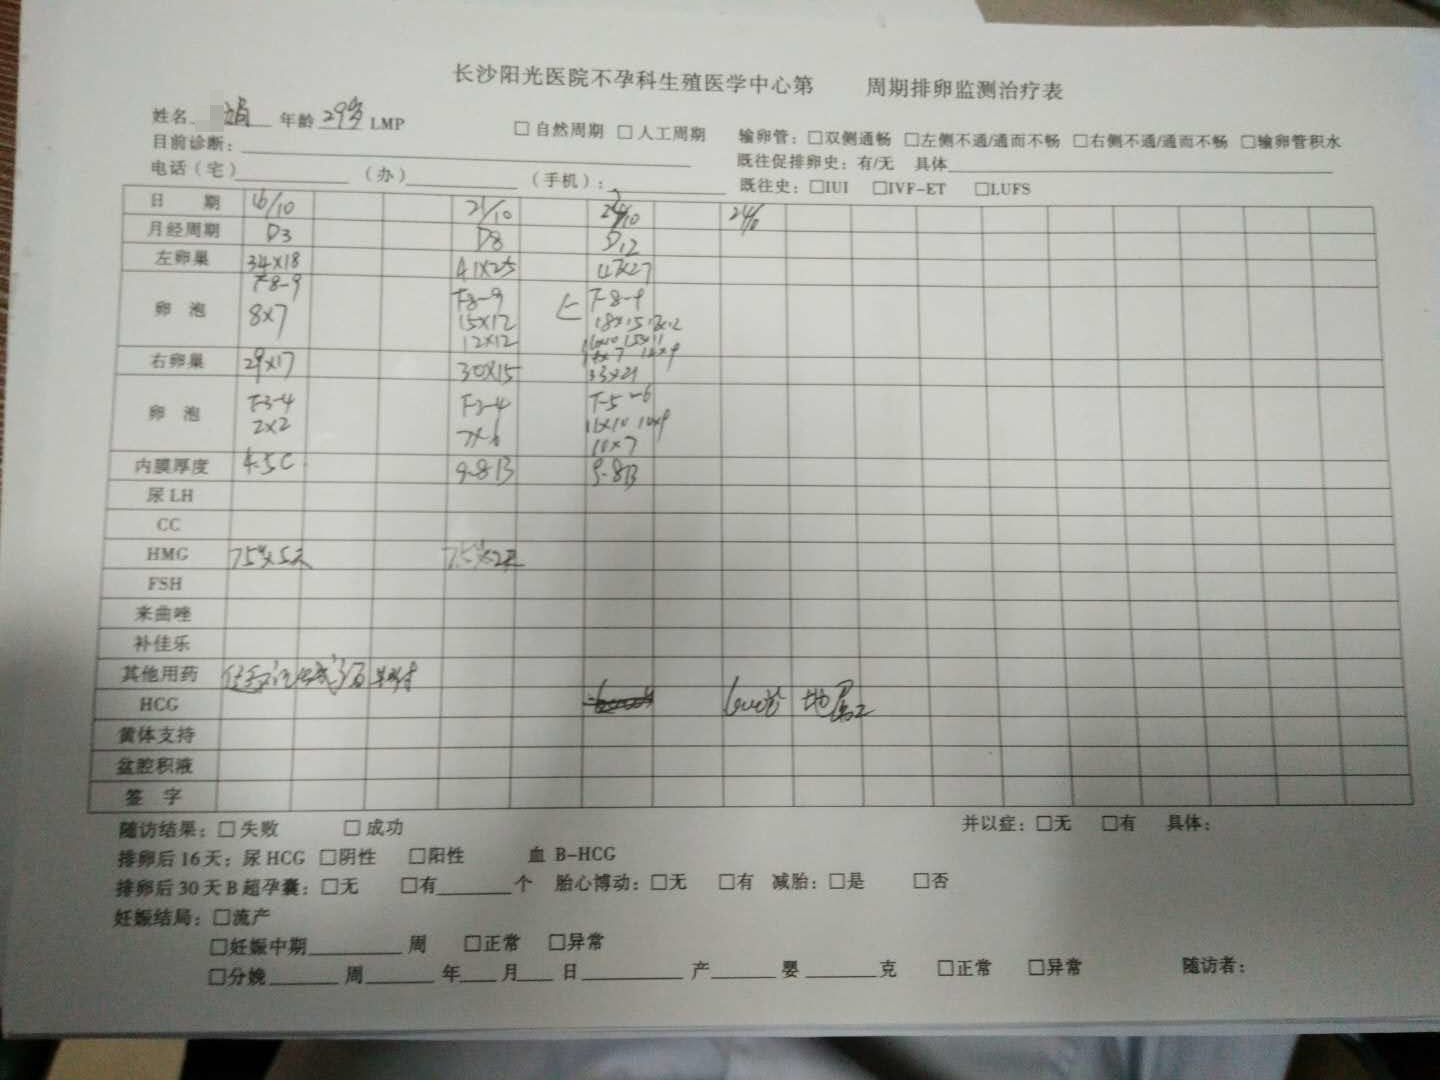 长沙阳光医院不孕科生殖医学中心第 周期排卵监测治疗表
姓名 娟 年龄 29岁 LMP □自然周期 □人工周期 输卵管：□双侧通畅 □左侧不通/通而不畅 □右侧不通/通而不畅 □输卵管积水
目前诊断： 既往促排卵史：有/无 具体
电话（宅） （办） （手机）： 既往史：□IUI □IVF-ET □LUFS
日 期 16/10 21/10 /10
月经周期 D3 D8 D12
左卵巢 34×18 41×25
卵 泡 T-8-9 T-8-9 T-8-9
8×7 15×12 18×15
12×12
右卵巢 29×17 30×15 33×21
卵 泡 T-3-4 T-3-4 T-5-6
2×2 7×6 16×10 10×9
10×7
内膜厚度 4.5C 9.8B 9.8B
尿LH
CC
HMG 75u×5天 75u×2天
FSH
来曲唑
补佳乐
其他用药
HCG
黄体支持
盆腔积液
签 字
随访结果：□失败 □成功 并以症：□无 □有 具体：
排卵后16天：尿HCG □阴性 □阳性 血 B-HCG
排卵后30天B超孕囊：□无 □有 个 胎心博动：□无 □有 减胎：□是 □否
妊娠结局：□流产
□妊娠中期 周 □正常 □异常
□分娩 周 年 月 日 产 婴 克 □正常 □异常 随访者：